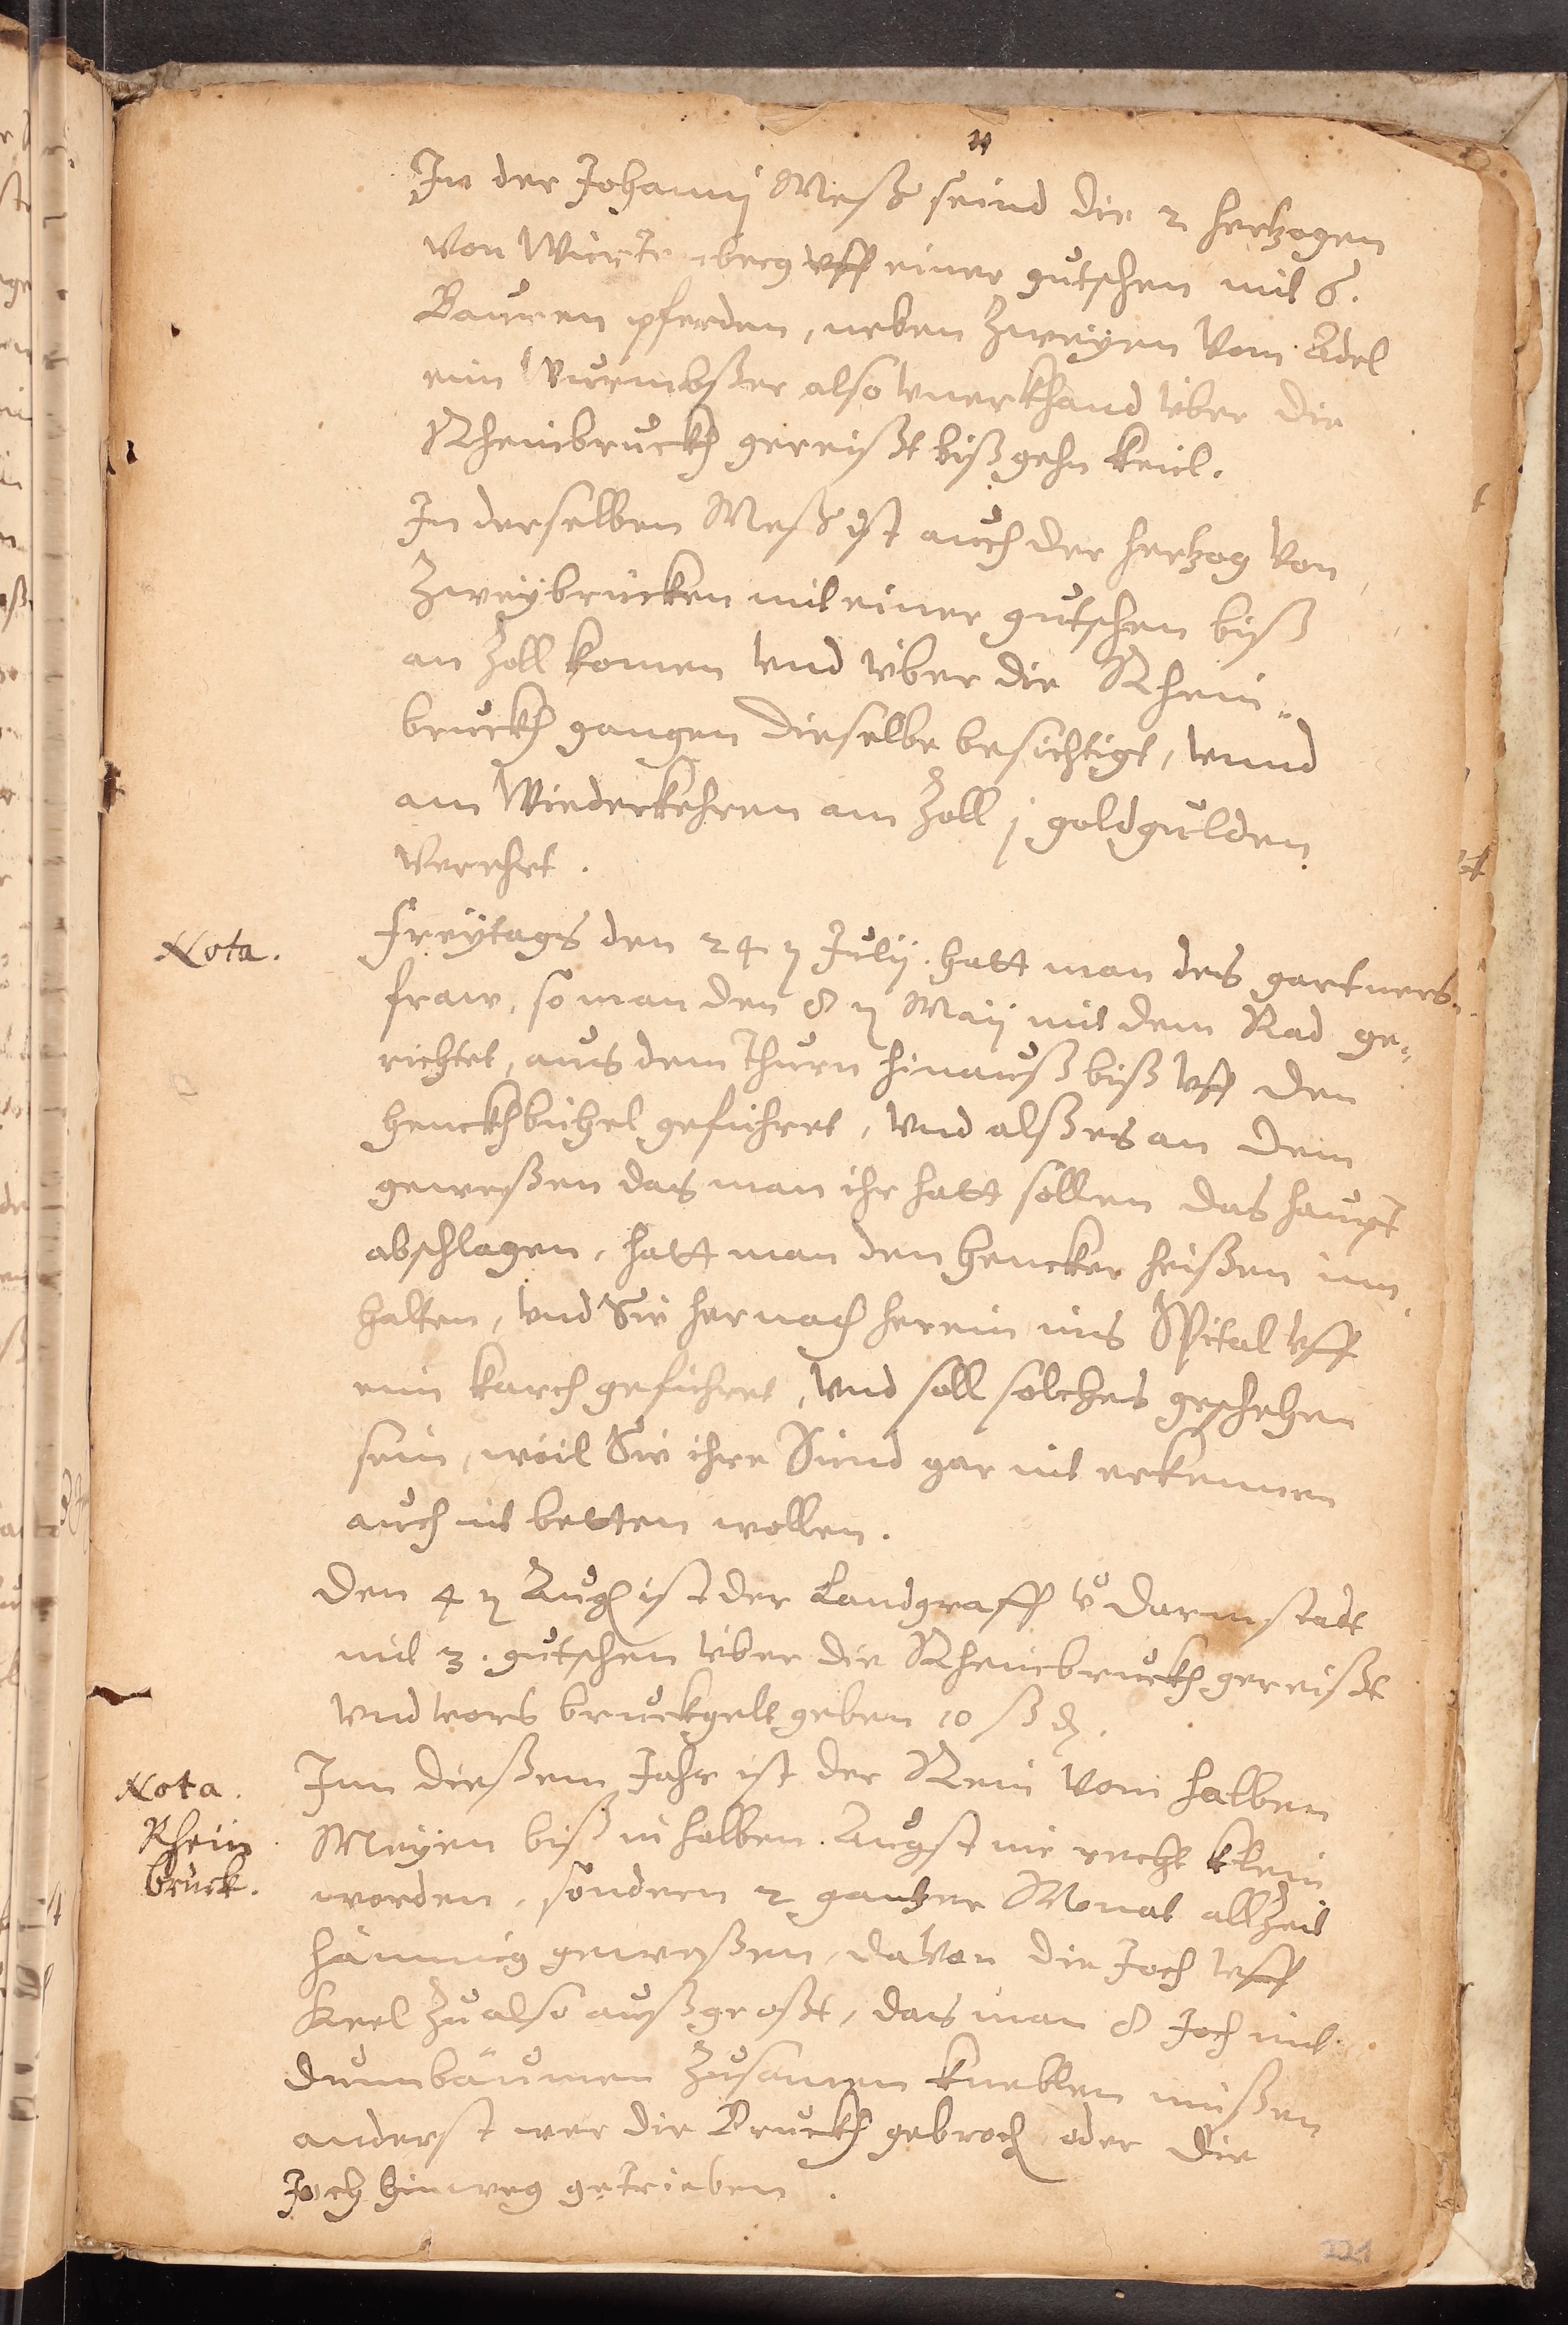 In der Johannj Meß seind die 2 hertzogen
von Wirtenberg vff einer gutschen mit 6.
Bauren pferden, neben zweyen vom Adel
ein Wurmbßer also vnerkhand vber die
Rheinbruckh gereißt biß gehn Keiel.
In derselben Meß ist auch der hertzog von
Zweybrücken mit einer gutschen biß
an Zoll komen vnd vber die Rhein-
bruckh gangen dieselbe besichtigt, vnnd
am Wiederkehren am Zoll j goldgulden
verehrt.
Nota.
Freytags den 24 Julij. hatt man des gartners
fraw, so man den 8 Maij mit dem Rad ge-
richtet, aus dem Thurn hinauß biß vff den
henckhbühel geführet, vnd alß es an dem
geweßen das man ihr hatt sollen das haupt
abschlagen, hatt man den hencker heißen inn
halten, vnd Sie hernach herein ins Spital vff
eim karch geführet, vnd soll solches geschehen
sein, weil Sie ihre Sünd gar nit erkennen
auch nit betten wollen.
Den 4 Aug ist der Landgraff v Darmstadt
mit 3. gutschen vber die Rheinbruckh gereißt
vnd vors bruckgelt geben 10 ß d.
Nota.
Rhein
bruck.
Inn dießem Jahr ist der Rein vom halben
Meyen biß in halben Augst nie recht klein
worden, sondern 2 gantzer Monat allzeit
hämmig geweßen, davon die Joch vff
Keel zu also außgeoßt, das man 8 Joch mit
dumbäumen zusamen kneblen müßen
anderst wer die Bruckh gebroch oder die
Joch hinweg getrieben.
221